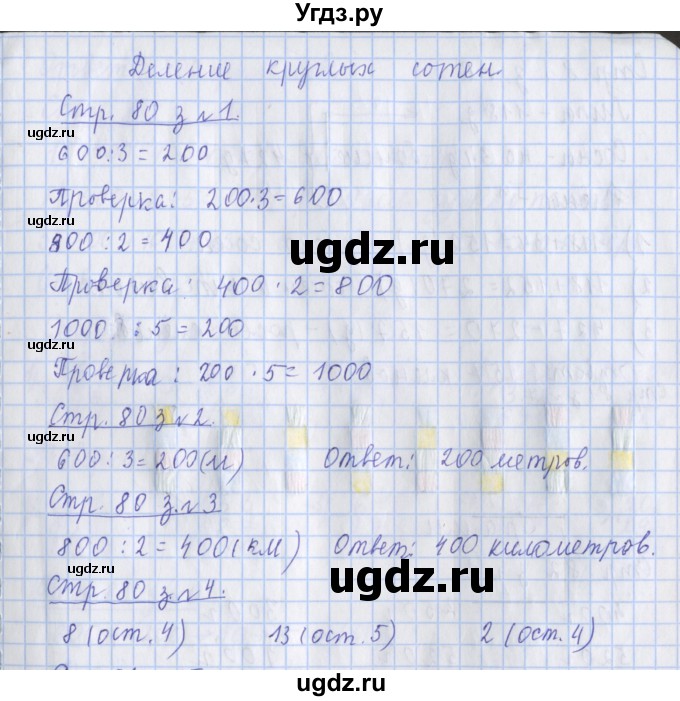 Угдз.ру
Деление круглых сотен
Стр. 80 з. №1.
ugdz.ru
600:3=200
Проверка: 200·3=600
ugdz.ru
800:2=400
ugdz.ru
Проверка: 400·2=800
1000:5=200
ugdz.ru
Проверка: 200·5=1000
Стр. 80 з. №2.
ugdz.ru
600:3=200(м) Ответ: 200 метров.
Стр. 80 з. №3
800:2=400(км) Ответ: 400 километров.
ugdz.ru
ugdz.ru
Стр. 80 з. №4.
8 (ост. 4) 13 (ост. 5) 2 (ост. 4)
ugdz.ru
ugdz.ru